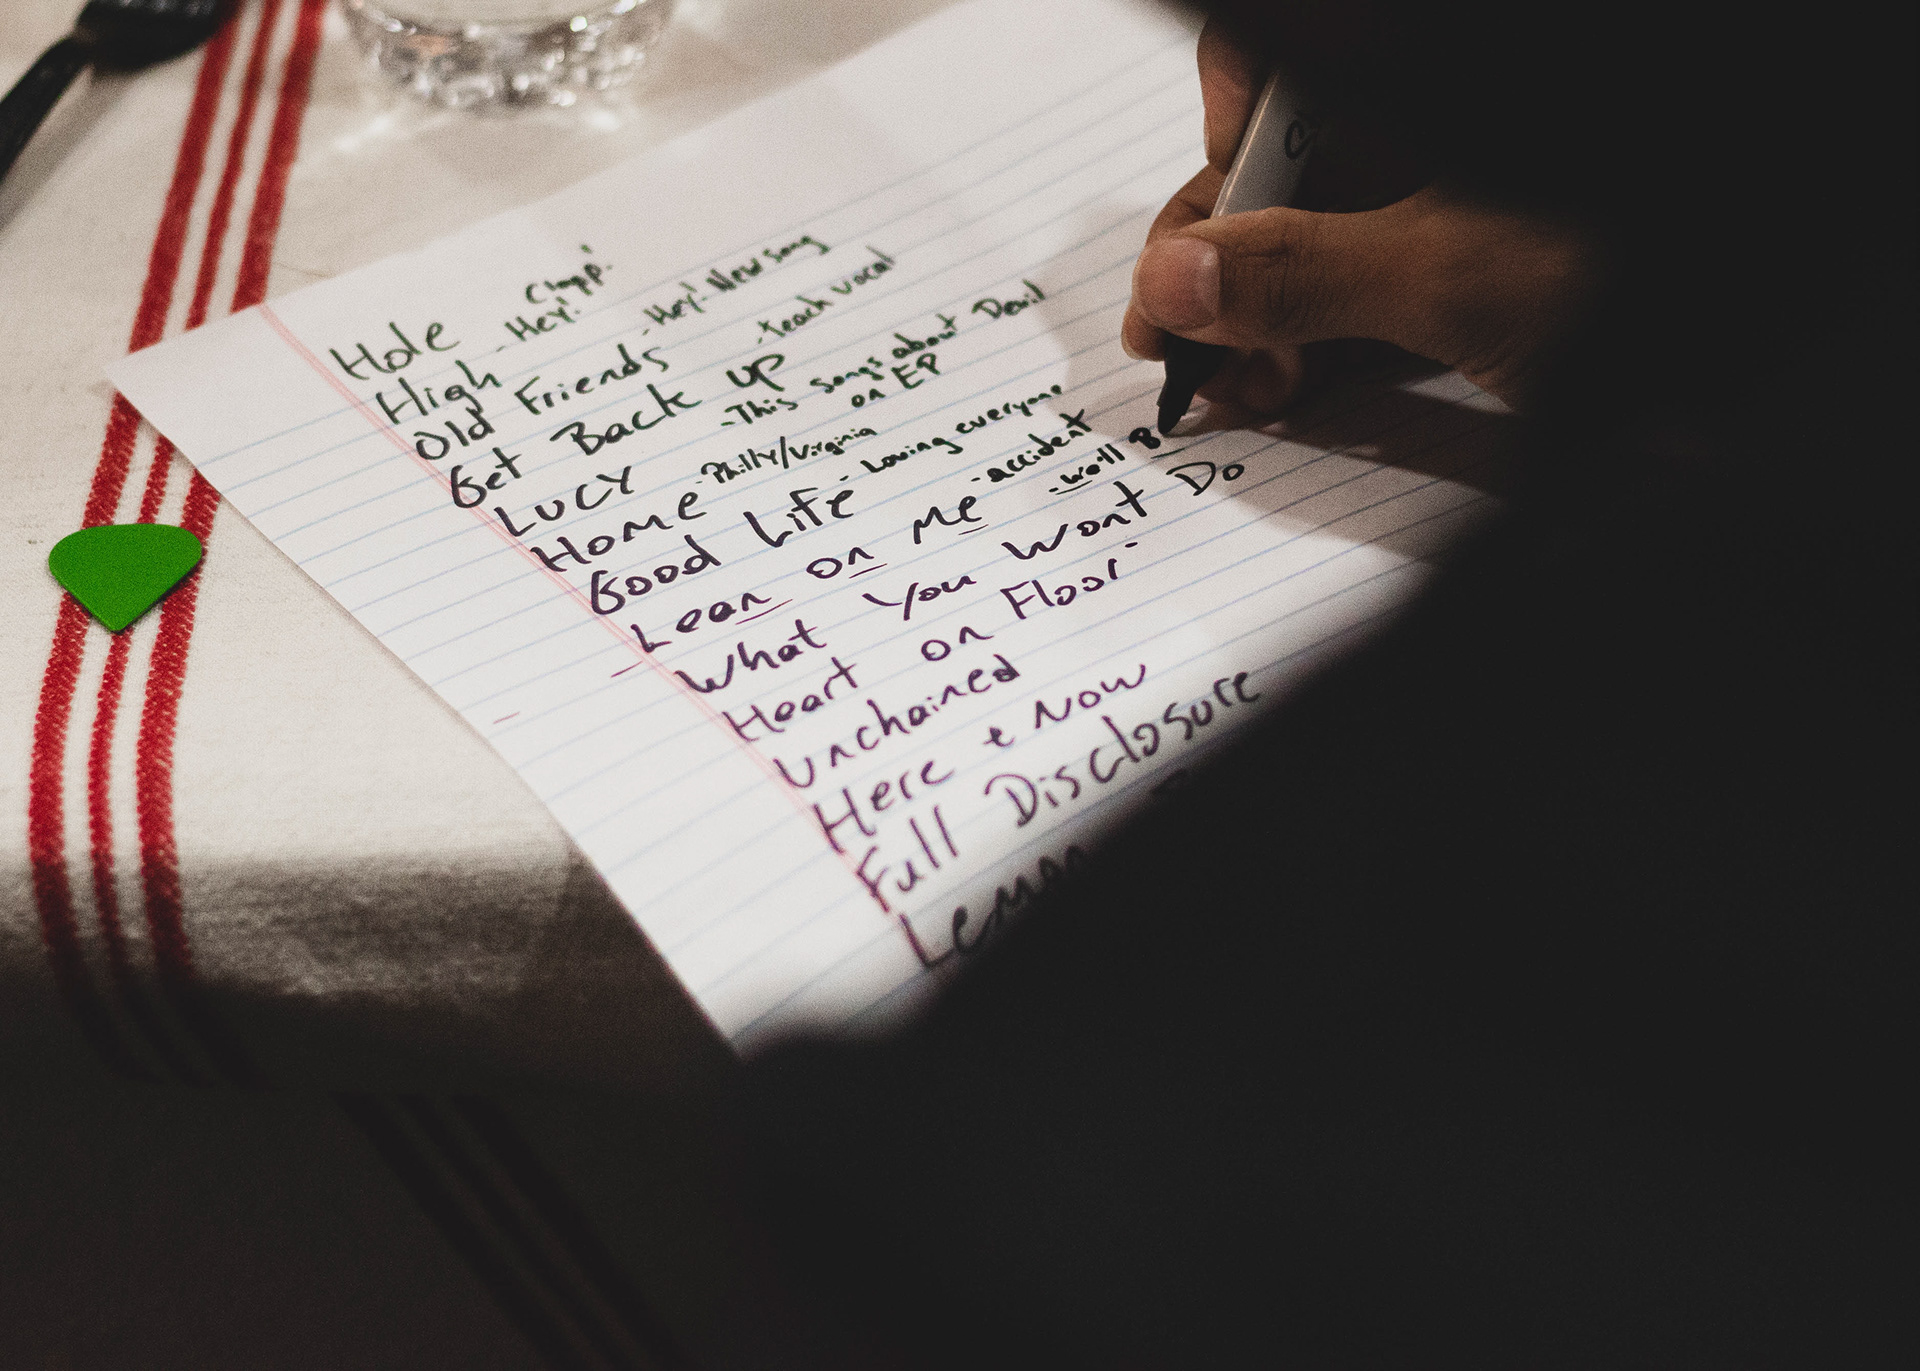 Clapp!
Hole
High - Hey!
Old Friends - Hey! New song
Get Back up - teach vocal
LUCY - This songs about Devil
on EP
Home - Philly/Virginia
Good Life - Loving everyone
Lean on Me - accident
What You Wont Do - we'll B
Heart on Floor
Unchained
Here & Now
Full Disclosure
Leman